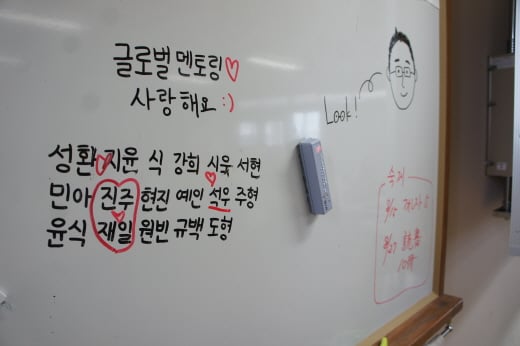 글로벌 멘토링♡
사랑해요 :)
성환♡지윤 식 강희 시욱 서현
민아 진주 현진 예인 석우 주형
윤식 재일 원빈 규백 도형
Look!
숙제